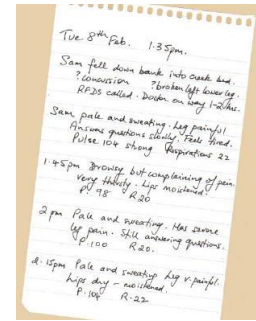 Tue 8th Feb. 1.35pm.
Sam fell down bank into creek bed.
? concussion ? broken left lower leg.
RFDS called. Doctor on way 1-2 hrs.
Sam pale and sweating. Leg painful
Answers questions slowly. Feels tired.
Pulse 104 strong Respirations 22
1.45pm Drowsy but complaining of pain.
Very thirsty. Lips moistened.
P. 98 R20
2pm Pale and sweating. Has severe
leg pain. Still answering questions.
P.100 R 20.
2.15pm Pale and sweating Leg v. painful.
Lips dry - moistened.
P. 104 R.22